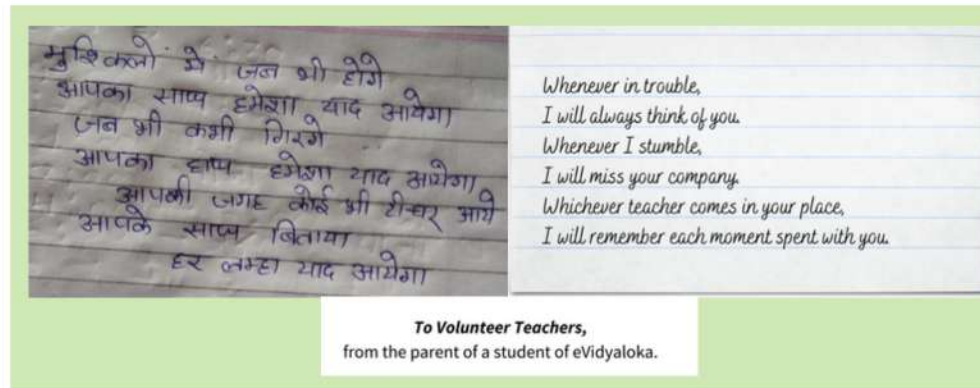 मुश्किलों में जब भी होगे
आपका साथ हमेशा याद आयेगा
जब भी कभी गिरगे
आपका हाथ हमेशा याद आयेगा
आपकी जगह कोई भी टीचर आये
आपके साथ बिताया
हर लम्हा याद आयेगा
Whenever in trouble,
I will always think of you.
Whenever I stumble,
I will miss your company.
Whichever teacher comes in your place,
I will remember each moment spent with you.
To Volunteer Teachers,
from the parent of a student of eVidyaloka.